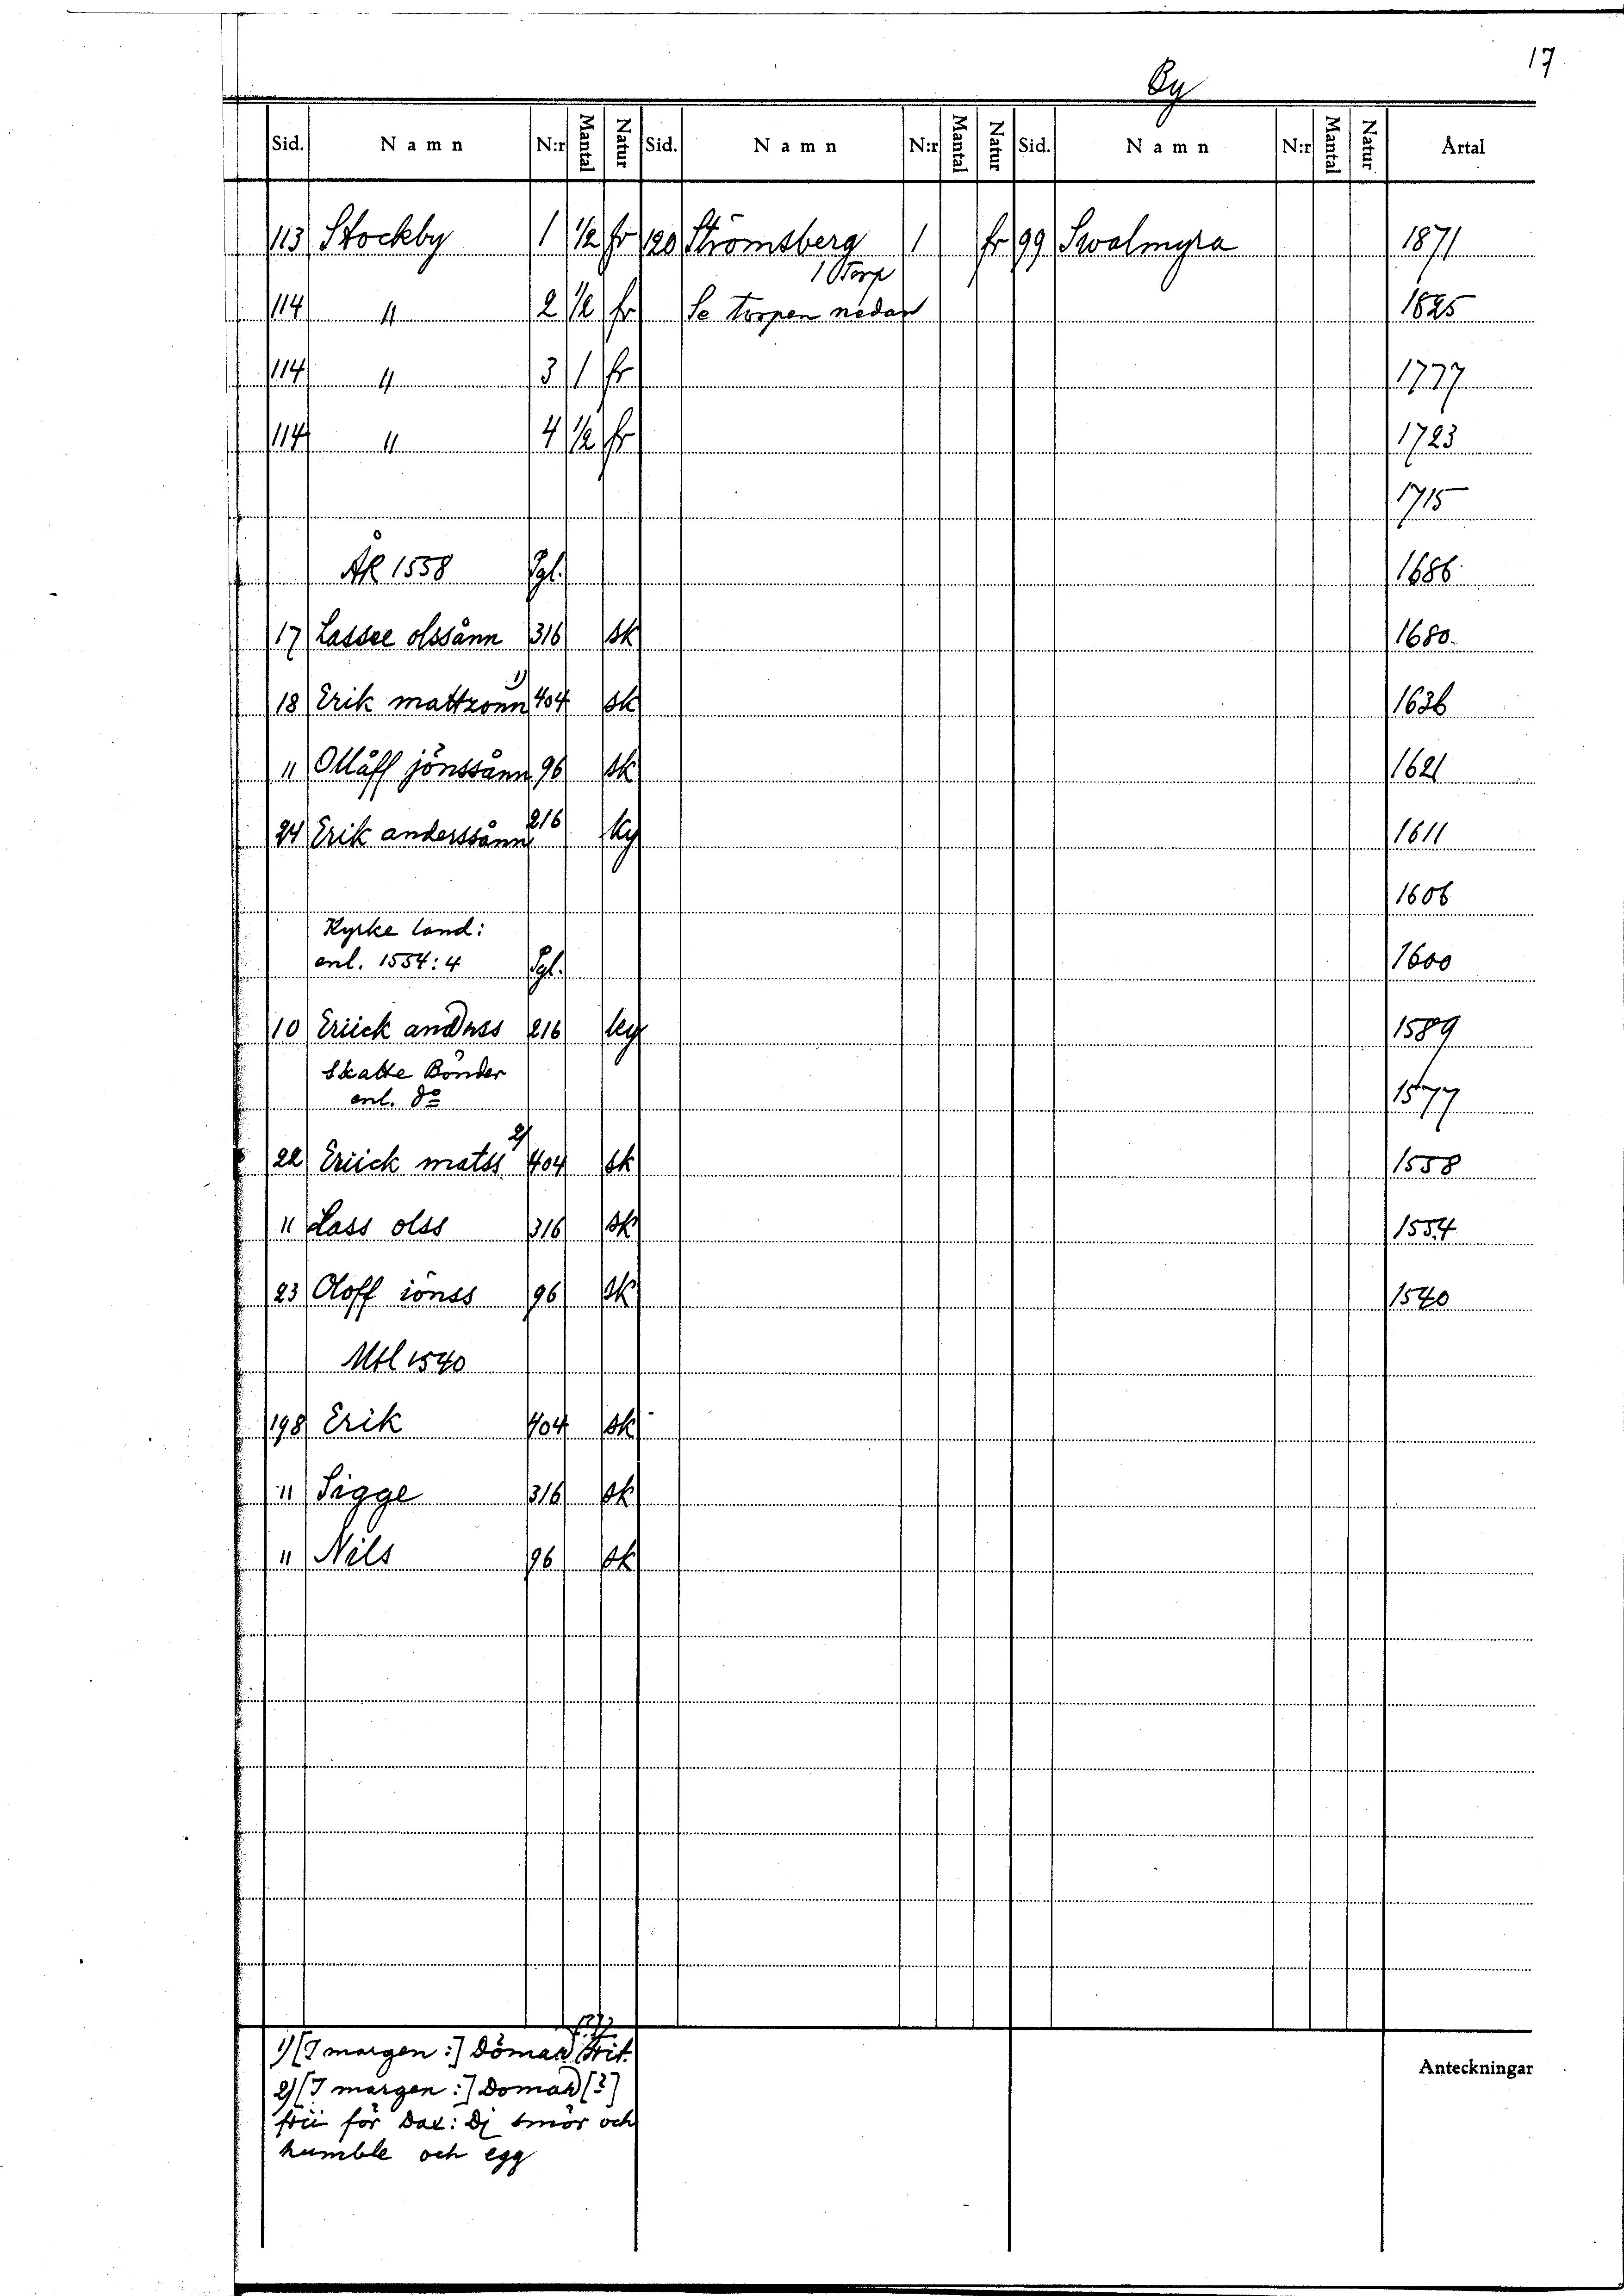 17
By
Sid. Namn N:r Mantal Natur Sid. Namn N:r Mantal Natur Sid. Namn N:r Mantal Natur Årtal
113 Stockby 1 1/2 fr 120 Strömsberg 1 fr 99 Swalmyra 1871
1 Torp
114 " 2 1/2 fr Se torpen nedan 1825
114 " 3 1 fr 1777
114 " 4 1/2 fr 1723
1715
ÅR 1558 Pgl. 1686
17 Lassee olssånn 316 sk 1680
18 Erik mattzonn 1) 404 sk 1636
" Ollåff jönssånn 96 sk 1621
24 Erik anderssånn 216 ky 1611
1606
Kyrke land:
enl. 1554:4 Pgl. 1600
10 Eriick andhss 216 ky 1589
Skatte Bönder
enl. do 1577
22 Eriick matss 2) 404 sk 1558
" Lass olss 316 sk 1554
23 Oloff iönss 96 sk 1540
Mtl 1540
198 Erik 404 sk
" Sigge 316 sk
" Nils 96 sk
1) [I margen:] Dömar [?] frit.
2) [I margen:] Domar [?]
frii för dax: Dj smör och
humble och egg
Anteckningar